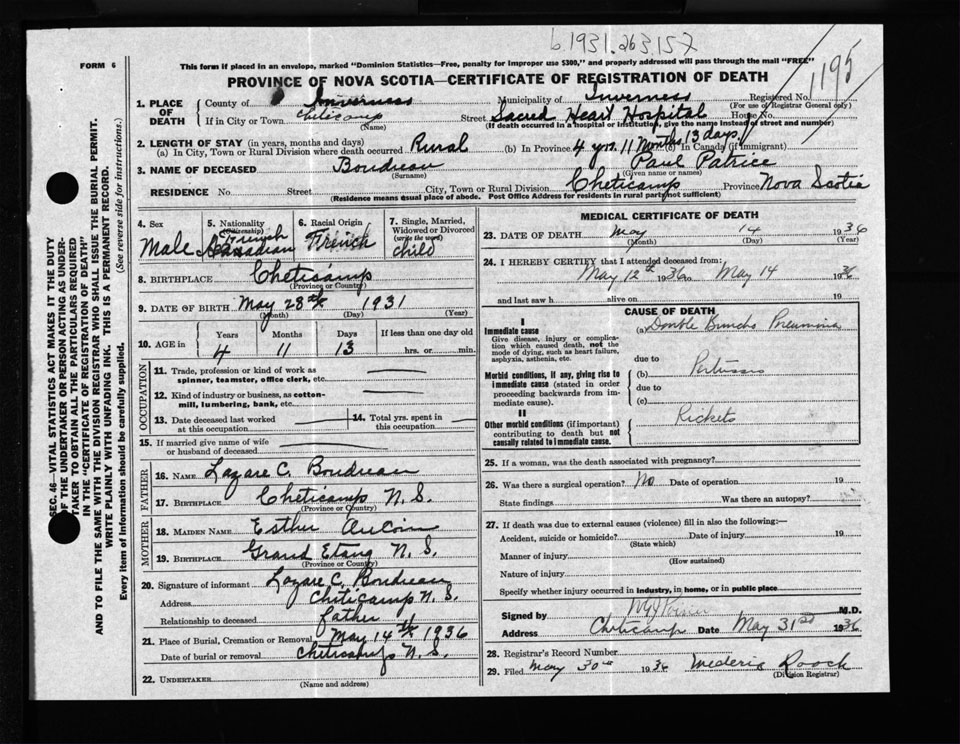 b 1931.263.157
1195
FORM 6
This form if placed in an envelope, marked "Dominion Statistics—Free, penalty for improper use $300," and properly addressed will pass through the mail "FREE"
PROVINCE OF NOVA SCOTIA—CERTIFICATE OF REGISTRATION OF DEATH
1. PLACE OF DEATH
County of Inverness Municipality of Inverness Registered No.
(For use of Registrar General only)
If in City or Town Cheticamp Street Sacred Heart Hospital House No.
(Name) (If death occurred in a hospital or institution, give the name instead of street and number)
2. LENGTH OF STAY (in years, months and days)
(a) In City, Town or Rural Division where death occurred Rural (b) In Province 4 yrs. 11 Months 13 days (c) In Canada (if immigrant)
3. NAME OF DECEASED Boudreau Paul Patrice
(Surname) (Given name or names)
RESIDENCE No. Street City, Town or Rural Division Cheticamp Province Nova Scotia
(Residence means usual place of abode. Post Office Address for residents in rural parts not sufficient)
4. Sex Male
5. Nationality (Citizenship) French Canadian
6. Racial Origin French
7. Single, Married, Widowed or Divorced (write the word) Child
8. BIRTHPLACE Cheticamp
(Province or Country)
9. DATE OF BIRTH May 28th 1931
(Month) (Day) (Year)
10. AGE in Years Months Days If less than one day old
4 11 13 hrs. or min.
OCCUPATION
11. Trade, profession or kind of work as spinner, teamster, office clerk, etc.
12. Kind of industry or business, as cotton-mill, lumbering, bank, etc.
13. Date deceased last worked at this occupation
14. Total yrs. spent in this occupation
15. If married give name of wife or husband of deceased
FATHER
16. NAME Lazare C. Boudreau
17. BIRTHPLACE Cheticamp N.S.
(Province or Country)
MOTHER
18. MAIDEN NAME Esther AuCoin
19. BIRTHPLACE Grand Etang N.S.
(Province or Country)
20. Signature of informant Lazare C. Boudreau
Address Cheticamp N.S.
Relationship to deceased father
21. Place of Burial, Cremation or Removal May 14th 1936
Date of burial or removal Cheticamp N.S.
22. UNDERTAKER
(Name and address)
MEDICAL CERTIFICATE OF DEATH
23. DATE OF DEATH May 14 1936
(Month) (Day) (Year)
24. I HEREBY CERTIFY that I attended deceased from:
May 12th 1936 to May 14 1936
and last saw h alive on 19
CAUSE OF DEATH
I
Immediate cause
Give disease, injury or complication which caused death, not the mode of dying, such as heart failure, asphyxia, asthenia, etc.
(a) Double Broncho Pneumonia
due to
Morbid conditions, if any, giving rise to immediate cause (stated in order proceeding backwards from immediate cause).
(b) Pertussis
due to
(c)
II
Other morbid conditions (if important) contributing to death but not causally related to immediate cause.
Rickets
25. If a woman, was the death associated with pregnancy?
26. Was there a surgical operation? No Date of operation 19
State findings Was there an autopsy?
27. If death was due to external causes (violence) fill in also the following:—
Accident, suicide or homicide? Date of injury 19
(State which)
Manner of injury
(How sustained)
Nature of injury
Specify whether injury occurred in industry, in home, or in public place
Signed by M.D.
Address Cheticamp Date May 31st 1936
28. Registrar's Record Number
29. Filed May 30th 1936 Mederic Roach
(Division Registrar)
SEC. 46—VITAL STATISTICS ACT MAKES IT THE DUTY
OF THE UNDERTAKER OR PERSON ACTING AS UNDER-
TAKER TO OBTAIN ALL THE PARTICULARS REQUIRED
IN THE "CERTIFICATE OF REGISTRATION OF DEATH"
AND TO FILE THE SAME WITH THE DIVISION REGISTRAR WHO SHALL ISSUE THE BURIAL PERMIT.
WRITE PLAINLY WITH UNFADING INK. THIS IS A PERMANENT RECORD.
Every item of Information should be carefully supplied. (See reverse side for instructions.)